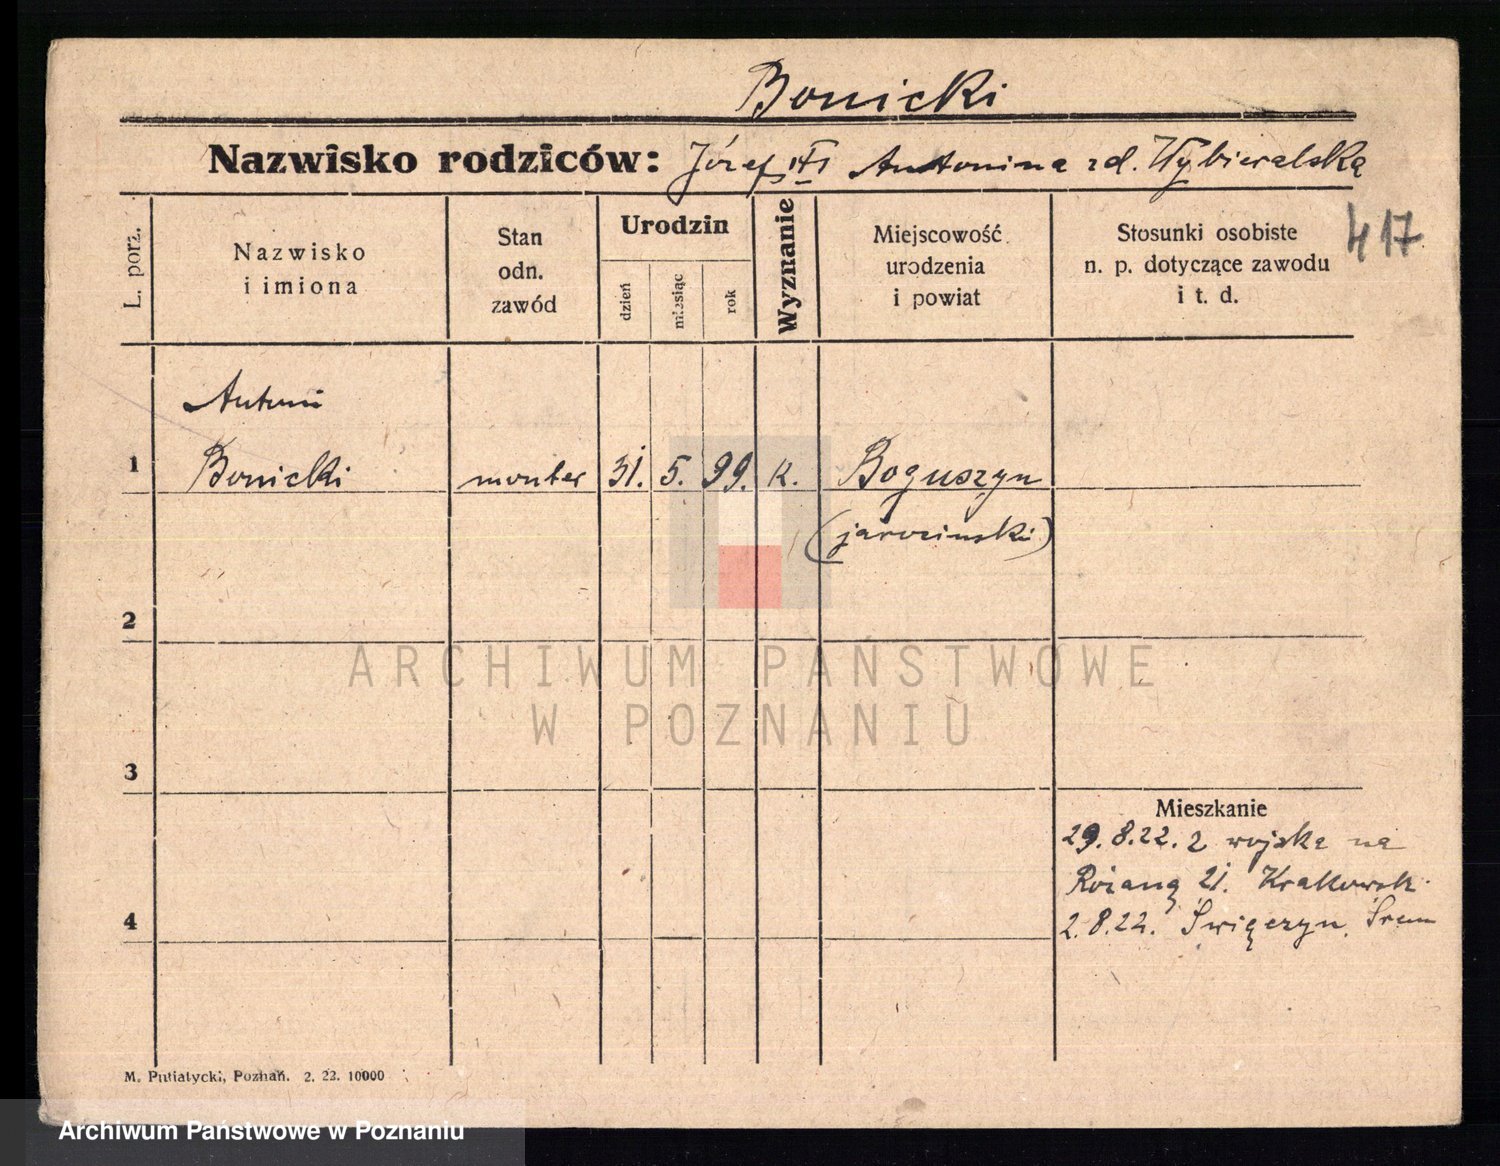 Bonicki
Nazwisko rodziców: Józef Antonina zd. Wybieralska
417
L. porz.
Nazwisko
i imiona
Stan
odn.
zawód
Urodzin
dzień
miesiąc
rok
Wyznanie
Miejscowość
urodzenia
i powiat
Stosunki osobiste
n. p. dotyczące zawodu
i t. d.
Antoni
1 Bonicki monter 31. 5. 99. k. Boguszyn
(jarociński)
2
3
Mieszkanie
29.8.22. z wojska na
21. Krakowsk.
4
2.8.22. Święczyn, Śrem
M. Putiatycki, Poznań. 2. 22. 10000
ARCHIWUM PAŃSTWOWE
W POZNANIU
Archiwum Państwowe w Poznaniu